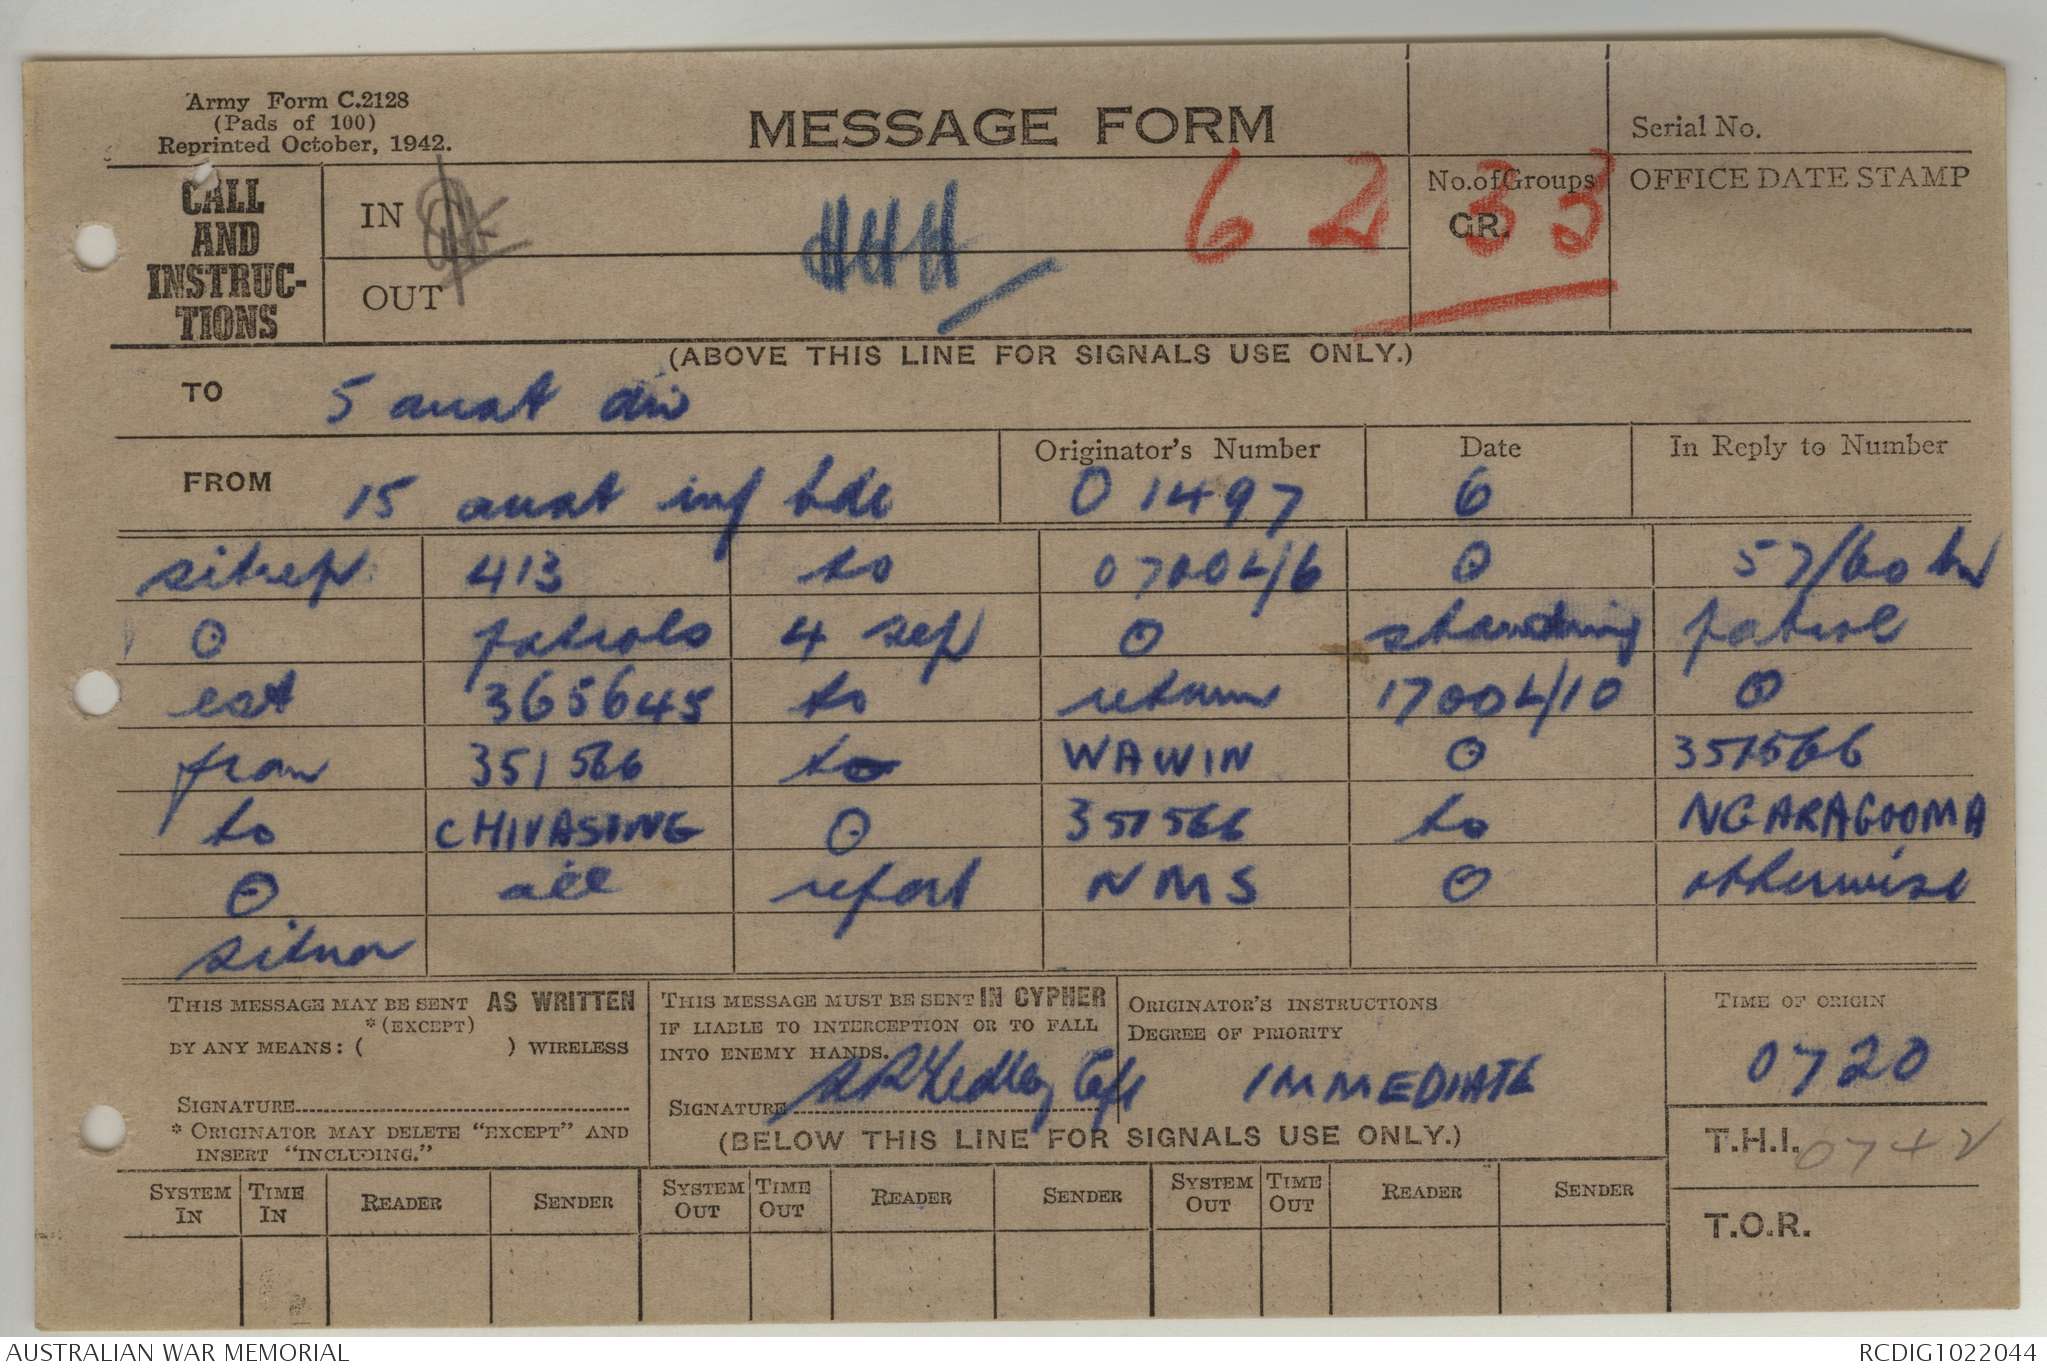 Army Form C.2128
(Pads of 100)
Reprinted October, 1942.
MESSAGE FORM
Serial No.
CALL AND INSTRUC-TIONS
IN
OUT
HHH
62
No. of Groups
GR. 33
OFFICE DATE STAMP
(ABOVE THIS LINE FOR SIGNALS USE ONLY.)
TO 5 aust div
FROM 15 aust inf bde
Originator's Number
O 1497
Date
6
In Reply to Number
sitrep 413 to 0700L/6 O 57/60 bn
O patrols 4 sep O standing patrol
est 365645 to return 1700L/10 O
from 351566 to WAWIN O 351566
to CHIVASING O 351566 to NGARAGOOMA
O all report NMS O otherwise
sitnor
THIS MESSAGE MAY BE SENT AS WRITTEN
* (EXCEPT)
BY ANY MEANS: ( ) WIRELESS
SIGNATURE
* ORIGINATOR MAY DELETE "EXCEPT" AND
INSERT "INCLUDING."
THIS MESSAGE MUST BE SENT IN CYPHER
IF LIABLE TO INTERCEPTION OR TO FALL
INTO ENEMY HANDS.
SIGNATURE Capt
ORIGINATOR'S INSTRUCTIONS
DEGREE OF PRIORITY
IMMEDIATE
TIME OF ORIGIN
0720
(BELOW THIS LINE FOR SIGNALS USE ONLY.)
T.H.I. 0742
T.O.R.
SYSTEM IN TIME IN READER SENDER SYSTEM OUT TIME OUT READER SENDER SYSTEM OUT TIME OUT READER SENDER
AUSTRALIAN WAR MEMORIAL
RCDIG1022044